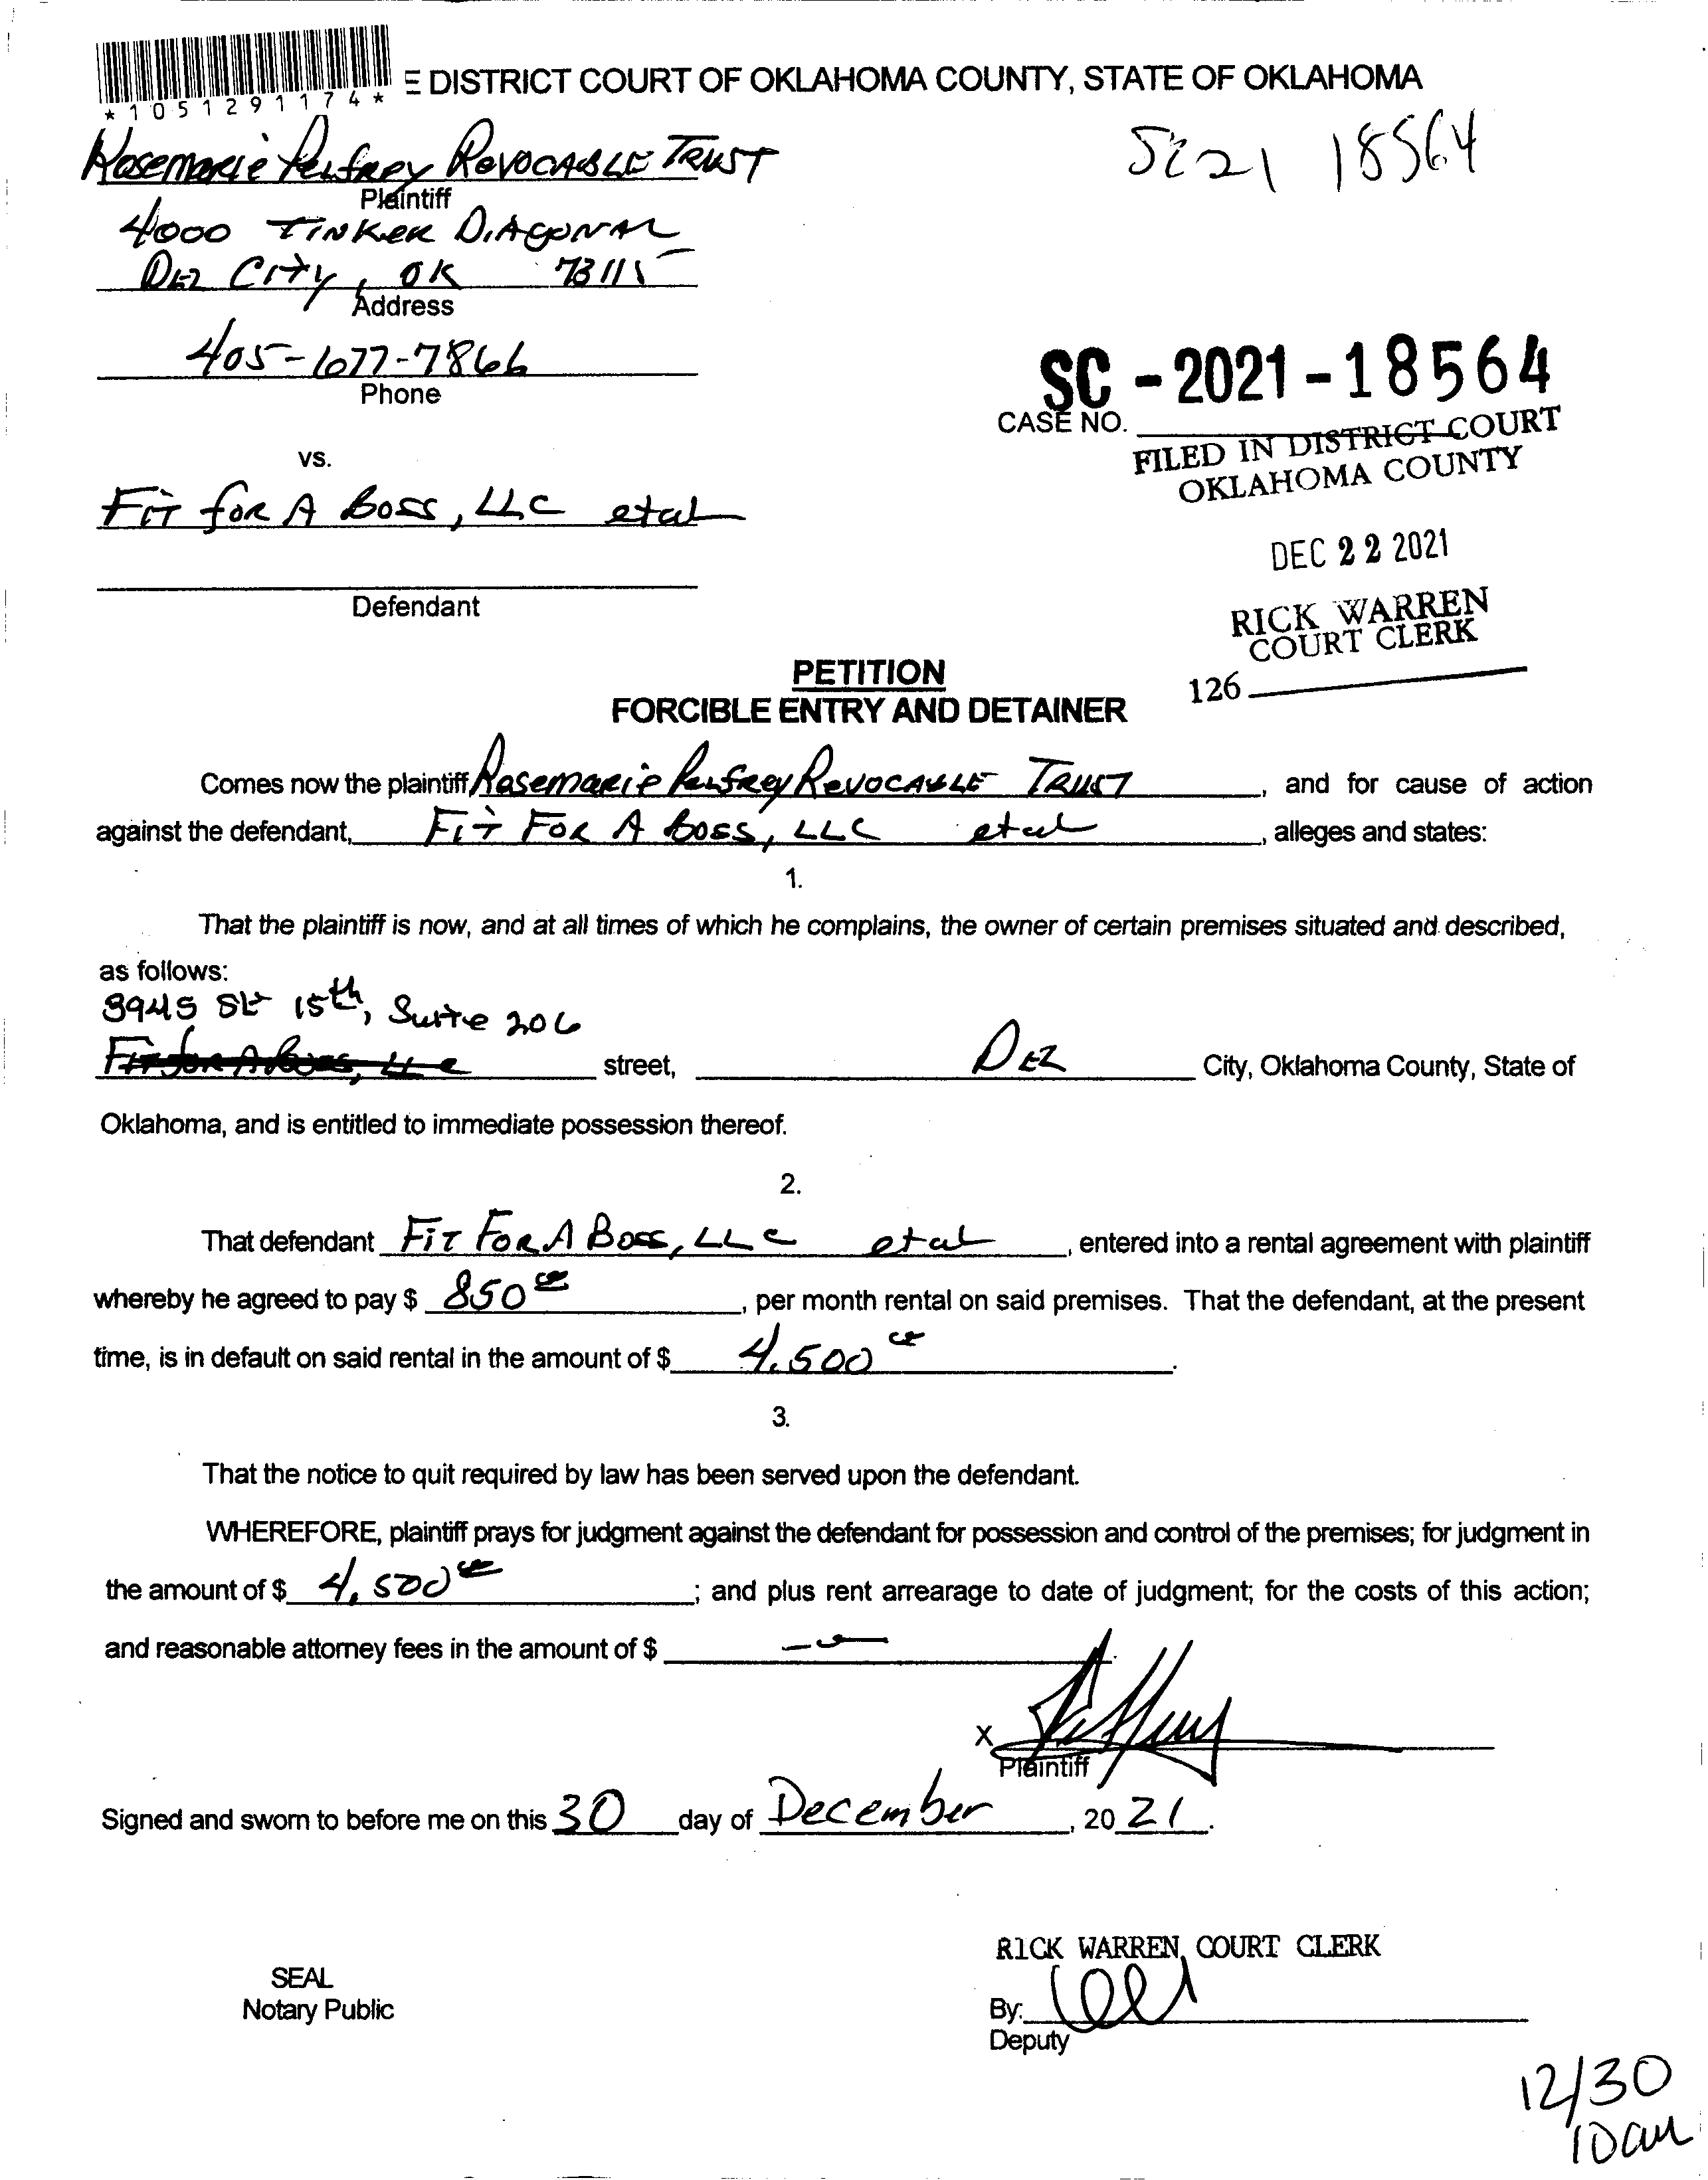 *1051291174*
E DISTRICT COURT OF OKLAHOMA COUNTY, STATE OF OKLAHOMA
SC21 18564
Rosemarie Pelfrey REVOCABLE TRUST
Plaintiff
4000 TINKER DIAGONAL
DEL CITY, OK 73115
Address
405-677-7866
Phone
SC - 2021 - 18564
CASE NO.
FILED IN DISTRICT COURT
OKLAHOMA COUNTY
vs.
FIT FOR A BOSS, LLC etal
DEC 22 2021
Defendant
RICK WARREN
COURT CLERK
126
PETITION
FORCIBLE ENTRY AND DETAINER
Comes now the plaintiff Rosemarie Pelfrey REVOCABLE TRUST, and for cause of action
against the defendant, FIT FOR A BOSS, LLC etal, alleges and states:
1.
That the plaintiff is now, and at all times of which he complains, the owner of certain premises situated and described,
as follows:
3945 SE 15th, Suite 206
Fit for A Boss, LLC street, DEL City, Oklahoma County, State of
Oklahoma, and is entitled to immediate possession thereof.
2.
That defendant FIT FOR A BOSS, LLC etal, entered into a rental agreement with plaintiff
whereby he agreed to pay $ 850 00, per month rental on said premises. That the defendant, at the present
time, is in default on said rental in the amount of $ 4,500 00.
3.
That the notice to quit required by law has been served upon the defendant.
WHEREFORE, plaintiff prays for judgment against the defendant for possession and control of the premises; for judgment in
the amount of $ 4,500 00; and plus rent arrearage to date of judgment; for the costs of this action;
and reasonable attorney fees in the amount of $ -0-.
X
Plaintiff
Signed and sworn to before me on this 30 day of December, 20 21.
RICK WARREN, COURT CLERK
SEAL
Notary Public
By:
Deputy
12/30
10am